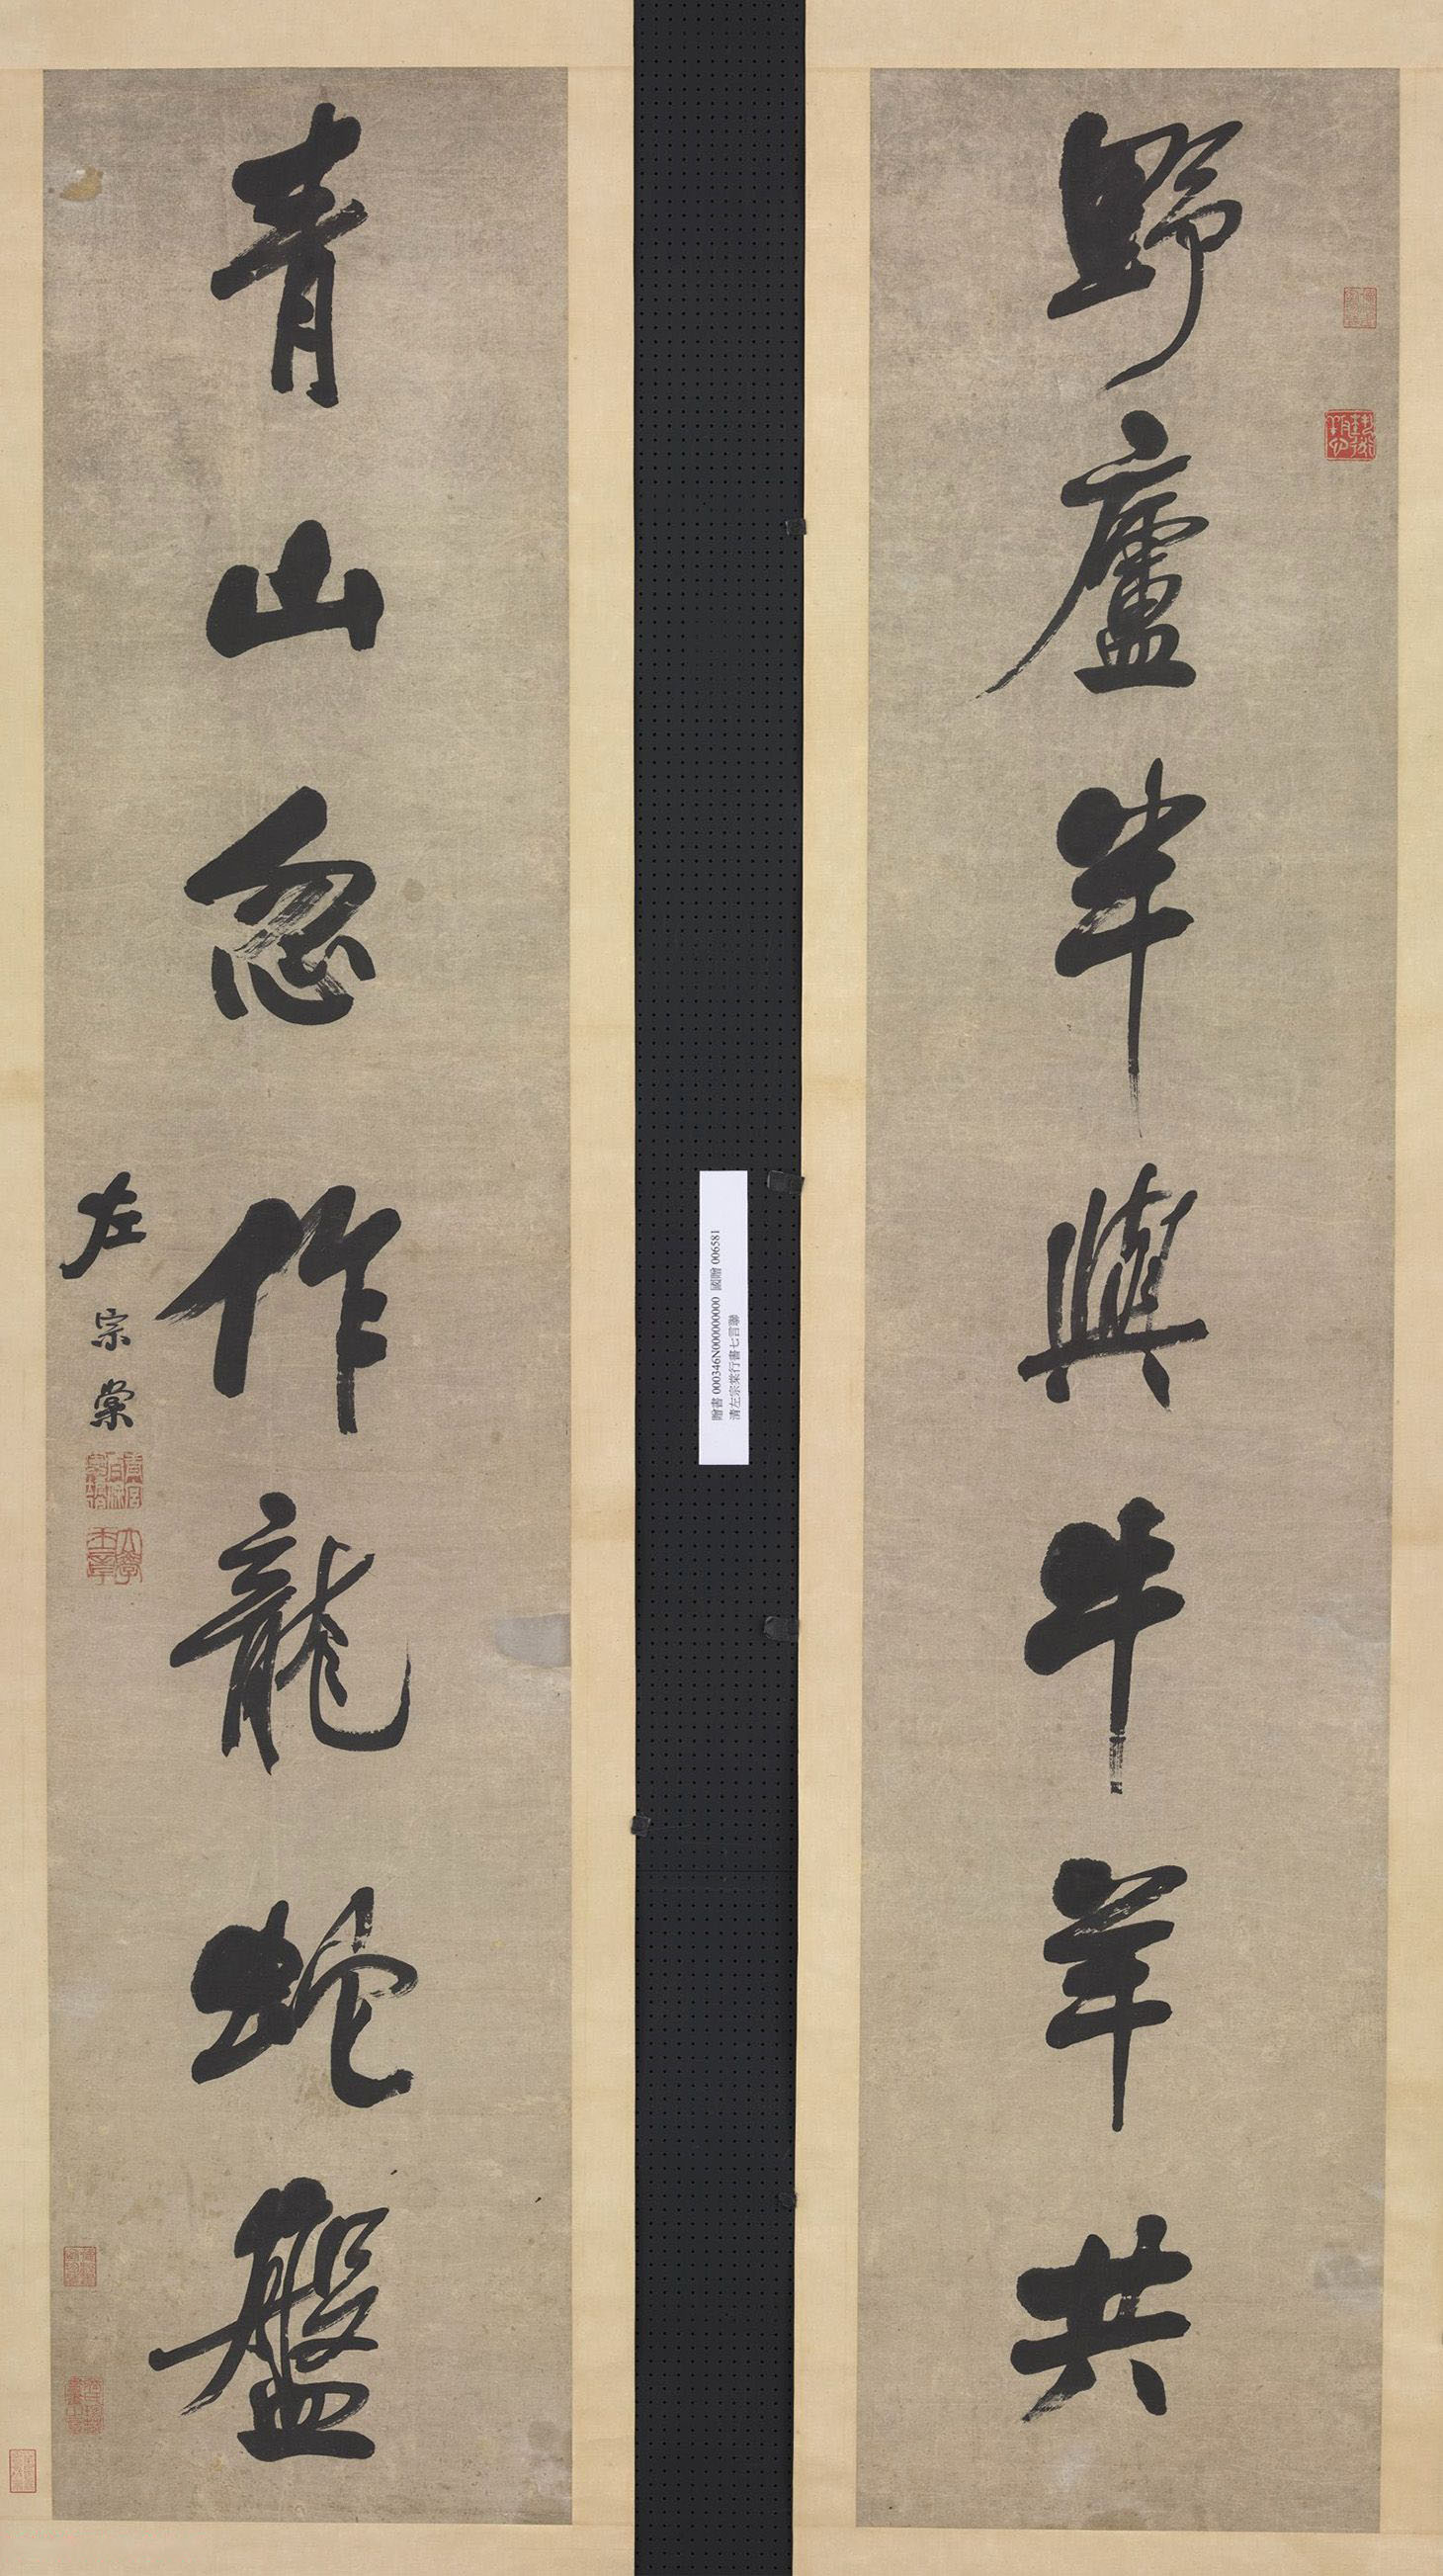 野廬半與牛羊共
青山忽作龍蛇盤
左宗棠
贈書 000346N000000000 國贈 006581
清左宗棠行書七言聯